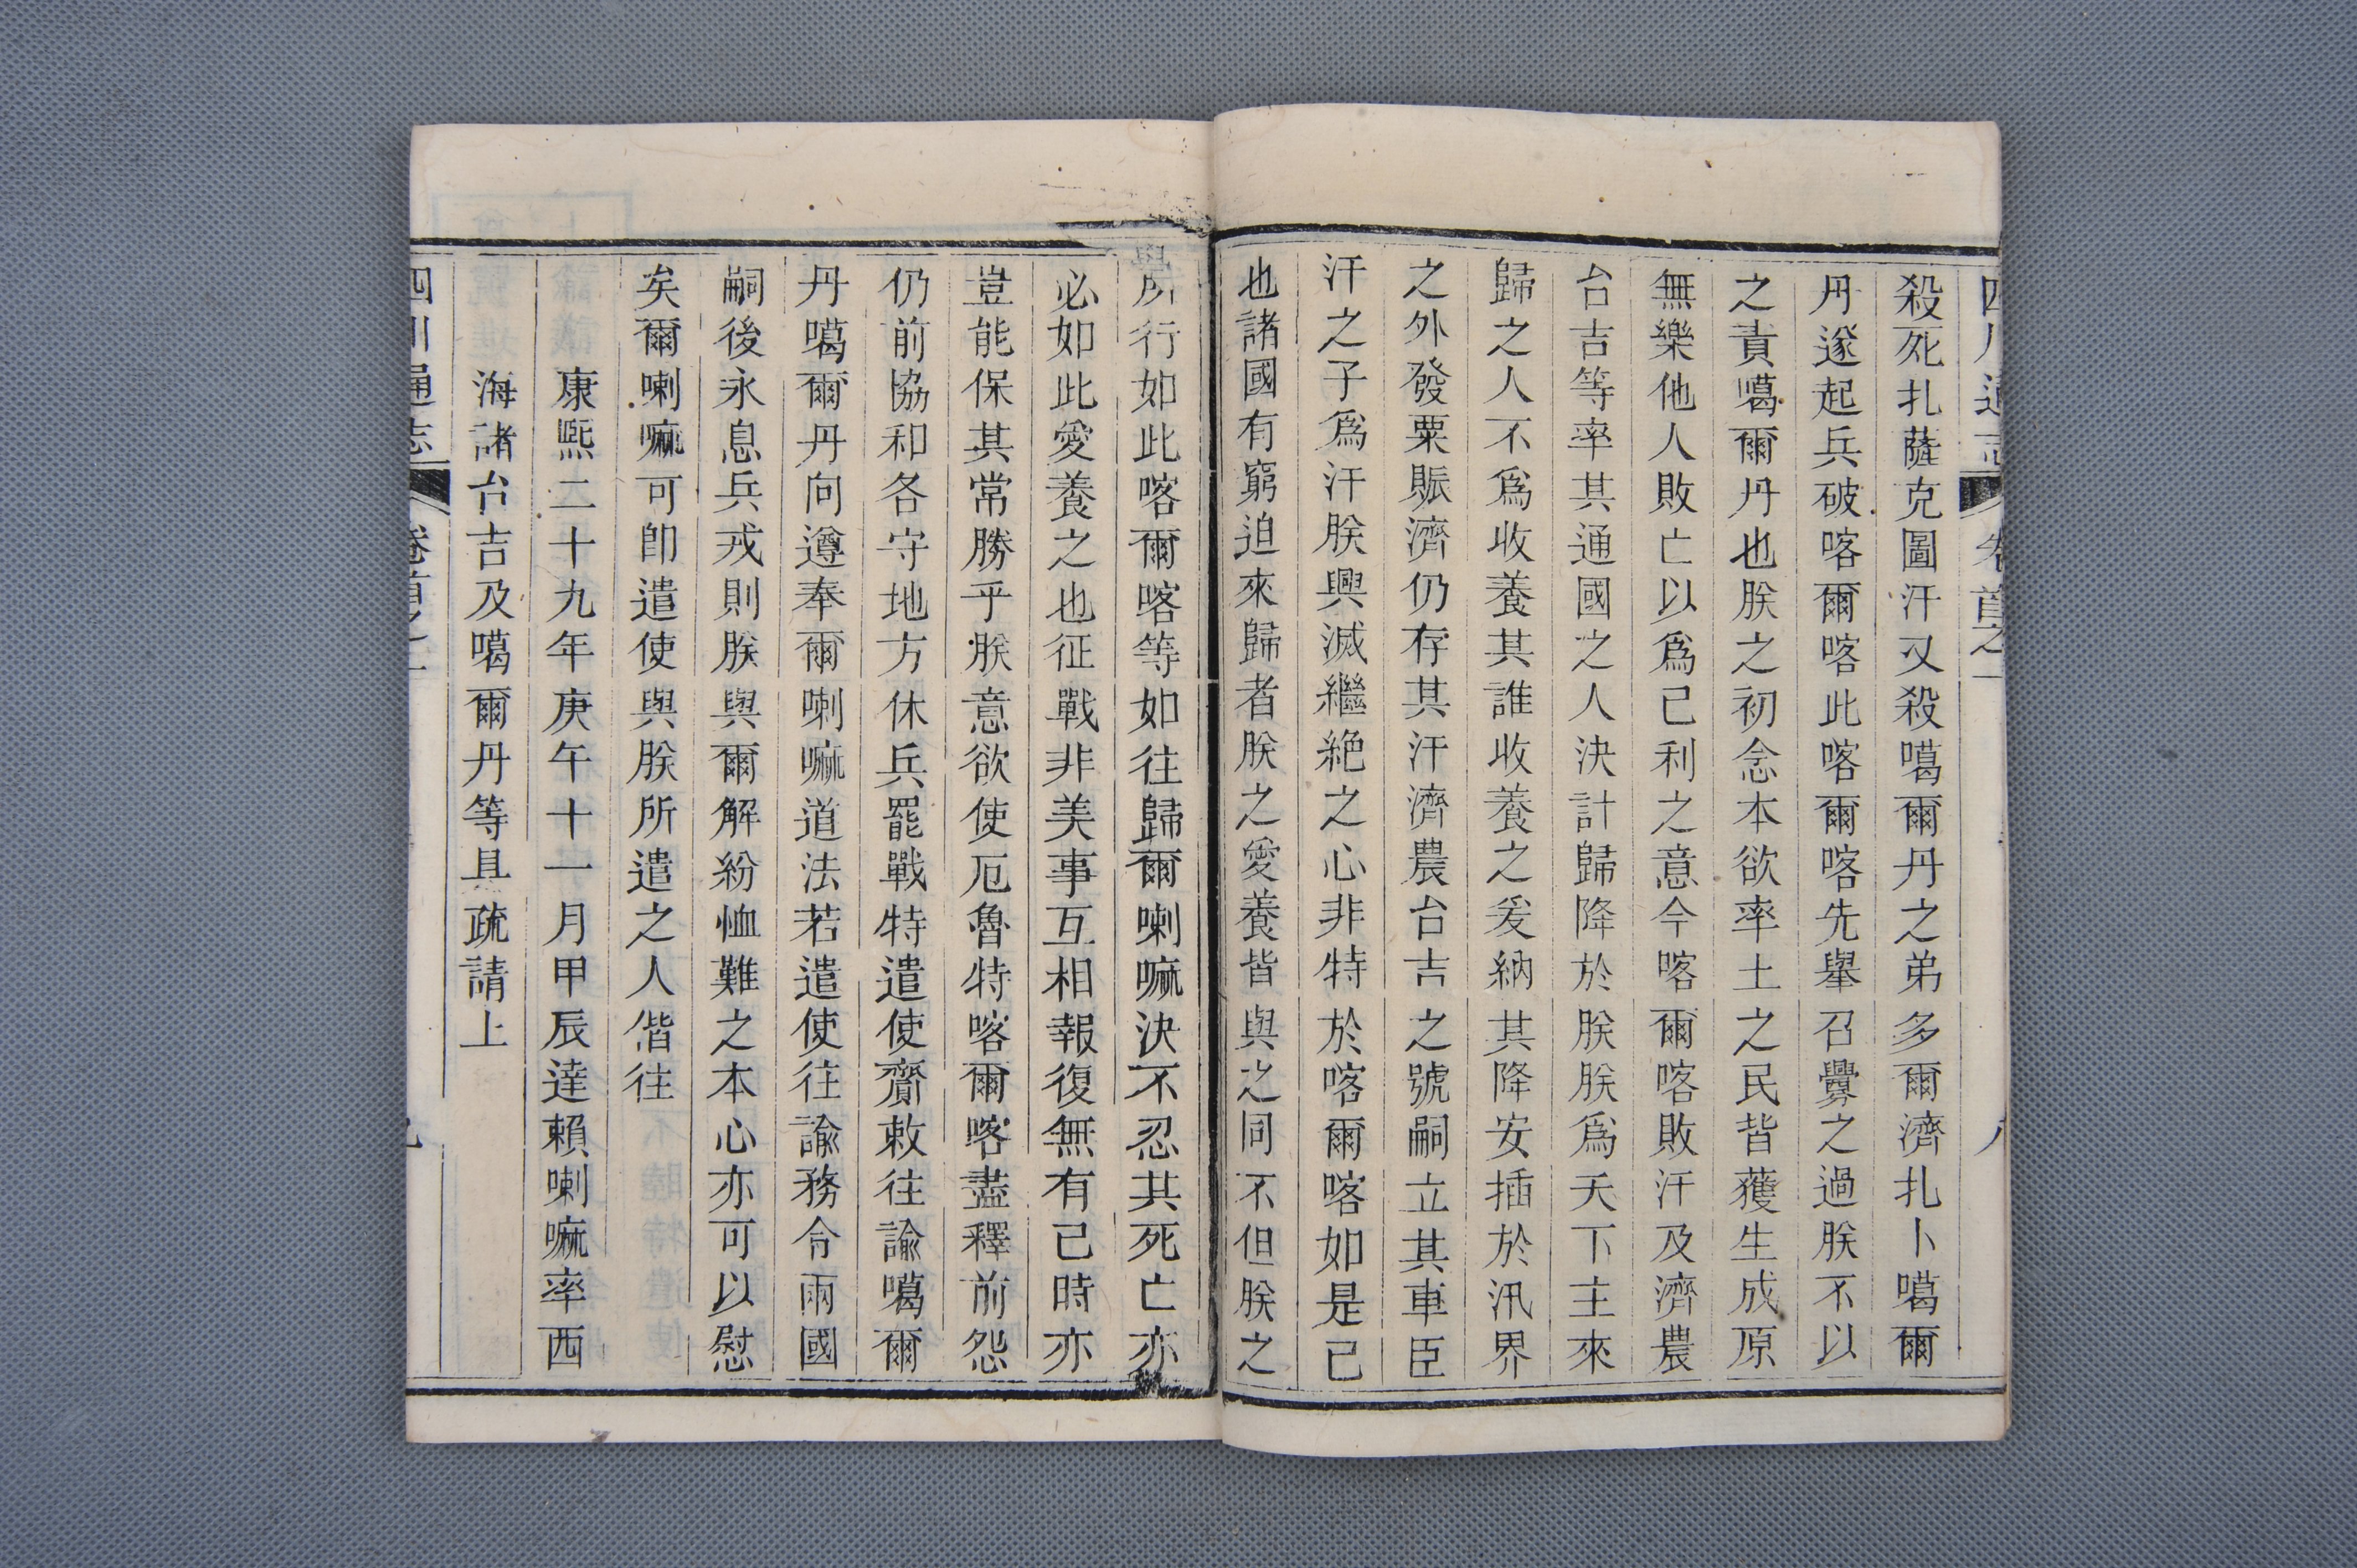 四川通志 卷首之一 八
殺死扎薩克圖汗又殺噶爾丹之弟多爾濟扎卜噶爾
丹遂起兵破喀爾喀此喀爾喀先舉召釁之過朕不以
之責噶爾丹也朕之初念本欲率土之民皆獲生成原
無樂他人敗亡以爲已利之意今喀爾喀敗汗及濟農
台吉等率其通國之人決計歸降於朕朕爲天下主來
歸之人不爲收養其誰收養之爰納其降安插於汛界
之外發粟賑濟仍存其汗濟農台吉之號嗣立其車臣
汗之子爲汗朕興滅繼絶之心非特於喀爾喀如是已
也諸國有窮迫來歸者朕之愛養皆與之同不但朕之
所行如此喀爾喀等如往歸爾喇嘛決不忍其死亡亦
必如此愛養之也征戰非美事互相報復無有已時亦
豈能保其常勝乎朕意欲使厄魯特喀爾喀盡釋前怨
仍前協和各守地方休兵罷戰特遣使齎敕往諭噶爾
丹噶爾丹向遵奉爾喇嘛道法若遣使往諭務令兩國
嗣後永息兵戎則朕與爾解紛恤難之本心亦可以慰
矣爾喇嘛可卽遣使與朕所遣之人偕往
康熙二十九年庚午十一月甲辰達賴喇嘛率西
海諸台吉及噶爾丹等具疏請上
四川通志 卷首之一 九